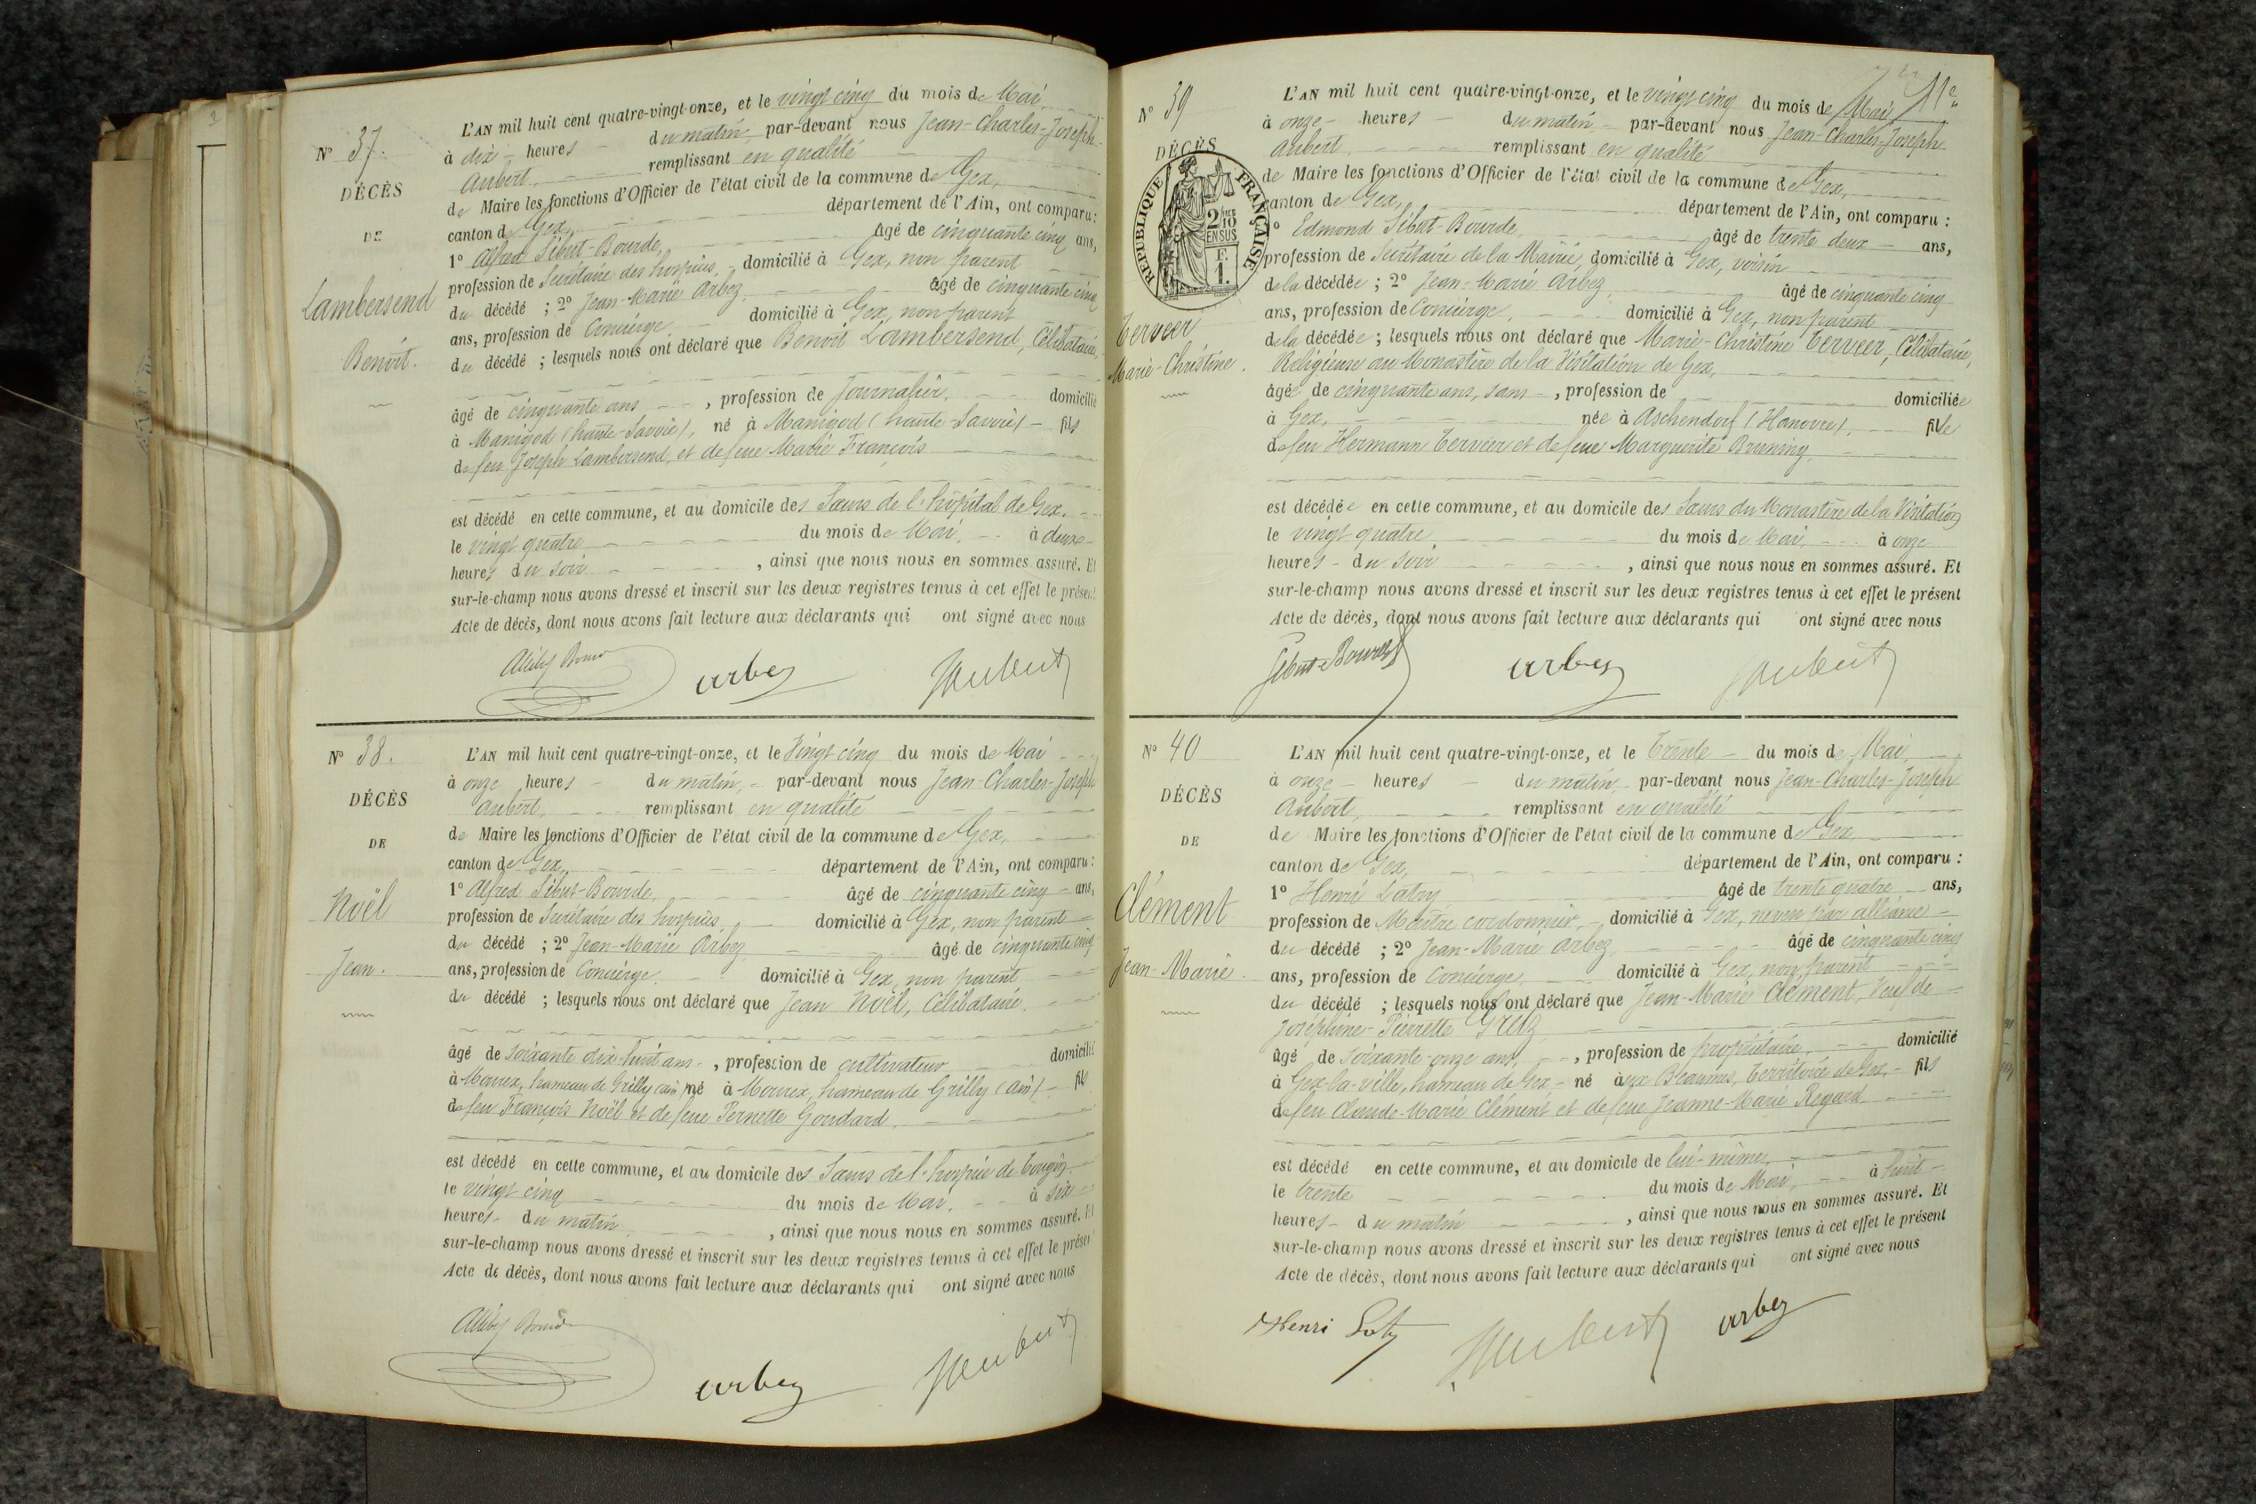 N° 37.
DÉCÈS
DE
Lambersend
Benoît.
L'AN mil huit cent quatre-vingt-onze, et le vingt cinq du mois de Mai
à dix heures du matin, par-devant nous Jean-Charles-Joseph
Aubert remplissant en qualité
de Maire les fonctions d'Officier de l'état civil de la commune de Gex,
canton de Gex, département de l'Ain, ont comparu :
1° Alfred Sibut-Bourde, âgé de cinquante cinq ans,
profession de Secrétaire des hospices, domicilié à Gex, non parent
du décédé ; 2° Jean-Marie Arbez âgé de cinquante cinq
ans, profession de Concierge, domicilié à Gex, non parent
du décédé ; lesquels nous ont déclaré que Benoît Lambersend, Célibataire,
âgé de cinquante ans , profession de Journalier, domicilié
à Manigod (haute-Savoie), né à Manigod (haute-Savoie) fils
de feu Joseph Lambersend et de feue Marie François
est décédé en cette commune, et au domicile des Sœurs de l'hôpital de Gex.
le vingt quatre du mois de Mai, à deux
heures du soir , ainsi que nous nous en sommes assuré. Et
sur-le-champ nous avons dressé et inscrit sur les deux registres tenus à cet effet le présent
Acte de décès, dont nous avons fait lecture aux déclarants qui ont signé avec nous
arbez
JAubert
N° 38.
DÉCÈS
DE
Noël
Jean.
L'AN mil huit cent quatre-vingt-onze, et le Vingt cinq du mois de Mai
à onze heures du matin, par-devant nous Jean-Charles-Joseph
Aubert, remplissant en qualité
de Maire les fonctions d'Officier de l'état civil de la commune de Gex,
canton de Gex, département de l'Ain, ont comparu :
1° Alfred Sibut-Bourde, âgé de cinquante cinq ans,
profession de Secrétaire des hospices, domicilié à Gex, non parent
du décédé ; 2° Jean-Marie Arbez âgé de cinquante cinq
ans, profession de Concierge domicilié à Gex, non parent
du décédé ; lesquels nous ont déclaré que Jean Noël, Célibataire.
âgé de soixante dix-huit ans , profession de cultivateur domicilié
à Mourex, hameau de Grilly (ain) né à Mourex, hameau de Grilly (ain) fils
de feu François Noël et de feue Pernette Goudard.
est décédé en cette commune, et au domicile des Sœurs de l'hospice de Tougin
le vingt cinq du mois de Mai, à six
heures du matin , ainsi que nous nous en sommes assuré. Et
sur-le-champ nous avons dressé et inscrit sur les deux registres tenus à cet effet le présent
Acte de décès, dont nous avons fait lecture aux déclarants qui ont signé avec nous
arbez
JAubert
11e
N° 39
DÉCÈS
RÉPUBLIQUE FRANÇAISE
2/10 EN SUS
F.
1.
Terveer
Marie-Christine.
L'AN mil huit cent quatre-vingt-onze, et le vingt cinq du mois de Mai
à onze heures du matin par-devant nous Jean-Charles-Joseph
Aubert remplissant en qualité
de Maire les fonctions d'Officier de l'état civil de la commune de Gex,
canton de Gex, département de l'Ain, ont comparu :
1° Edmond Sibut-Bourde, âgé de trente deux ans,
profession de Secrétaire de la Mairie, domicilié à Gex, voisin
de la décédée ; 2° Jean-Marie Arbez âgé de cinquante cinq
ans, profession de Concierge, domicilié à Gex, non parent
de la décédée ; lesquels nous ont déclaré que Marie-Christine Terveer, Célibataire,
Religieuse au Monastère de la Visitation de Gex,
âgé de cinquante ans, sans , profession de domiciliée
à Gex, née à Aschendorf (Hanovre), fille
de feu Hermann Terveer et de feue Marguerite Bruning
est décédée en cette commune, et au domicile des Sœurs du Monastère de la Visitation
le vingt quatre du mois de Mai, à onze
heures du soir , ainsi que nous nous en sommes assuré. Et
sur-le-champ nous avons dressé et inscrit sur les deux registres tenus à cet effet le présent
Acte de décès, dont nous avons fait lecture aux déclarants qui ont signé avec nous
Sibut-Bourde
arbez
JAubert
N° 40
DÉCÈS
DE
Clément
Jean-Marie.
L'AN mil huit cent quatre-vingt-onze, et le Trente du mois de Mai
à onze heures du matin, par-devant nous Jean-Charles-Joseph
Aubert, remplissant en qualité
de Maire les fonctions d'Officier de l'état civil de la commune de Gex
canton de Gex, département de l'Ain, ont comparu :
1° Henri âgé de trente quatre ans,
profession de Maître cordonnier, domicilié à Gex, neveu par alliance
du décédé ; 2° Jean-Marie Arbez, âgé de cinquante cinq
ans, profession de Concierge, domicilié à Gex, non parent
du décédé ; lesquels nous ont déclaré que Jean-Marie Clément, Veuf de
Joséphine-Pierrette
âgé de soixante-onze ans, , profession de propriétaire, domicilié
à Gex-la-ville, hameau de Gex né aux Beaumes, territoire de Gex, fils
de feu Claude-Marie Clément et de feue Jeanne-Marie Regard
est décédé en cette commune, et au domicile de lui-même,
le trente du mois de Mai, à huit
heures du matin , ainsi que nous nous en sommes assuré. Et
sur-le-champ nous avons dressé et inscrit sur les deux registres tenus à cet effet le présent
Acte de décès, dont nous avons fait lecture aux déclarants qui ont signé avec nous
Henri
JAubert
arbez